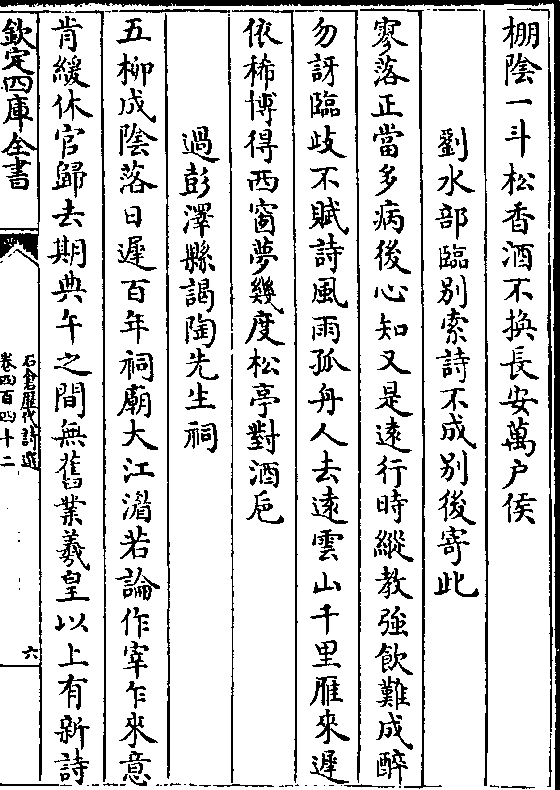 棚陰一斗松香酒不換長安萬户侯
劉水部臨别索詩不成别後寄此
寥落正當多病後心知又是遠行時縱教強飲難成醉
勿訝臨歧不賦詩風雨孤舟人去遠雲山千里雁來遲
依稀博得西窗夢幾度松亭對酒巵
過彭澤縣謁陶先生祠
五柳成陰落日遲百年祠廟大江湄若論作宰乍來意
肯緩休官歸去期典午之間無舊業羲皇以上有新詩
欽定四庫全書
石倉歷代詩選
卷四百四十二
六